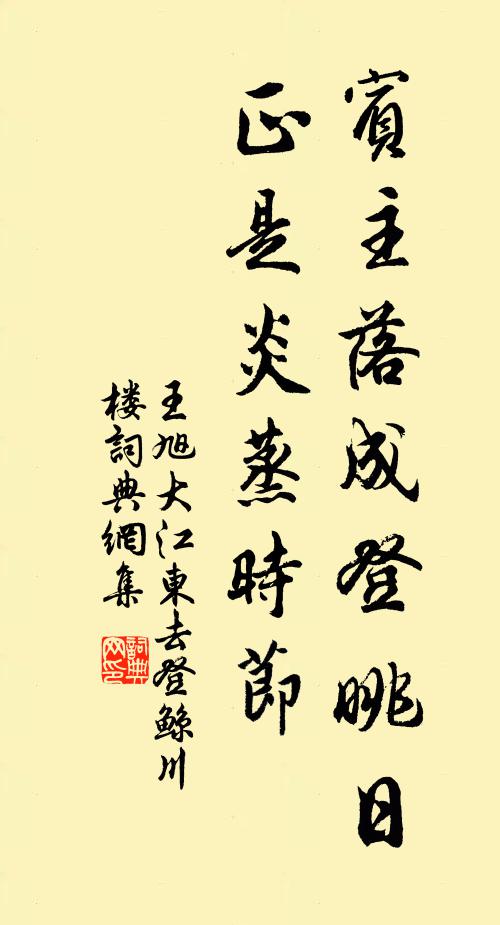 賓主落成登眺日
正是炎蒸時節
王旭大江東去登鯨川
楼詞典網集
詞典网印